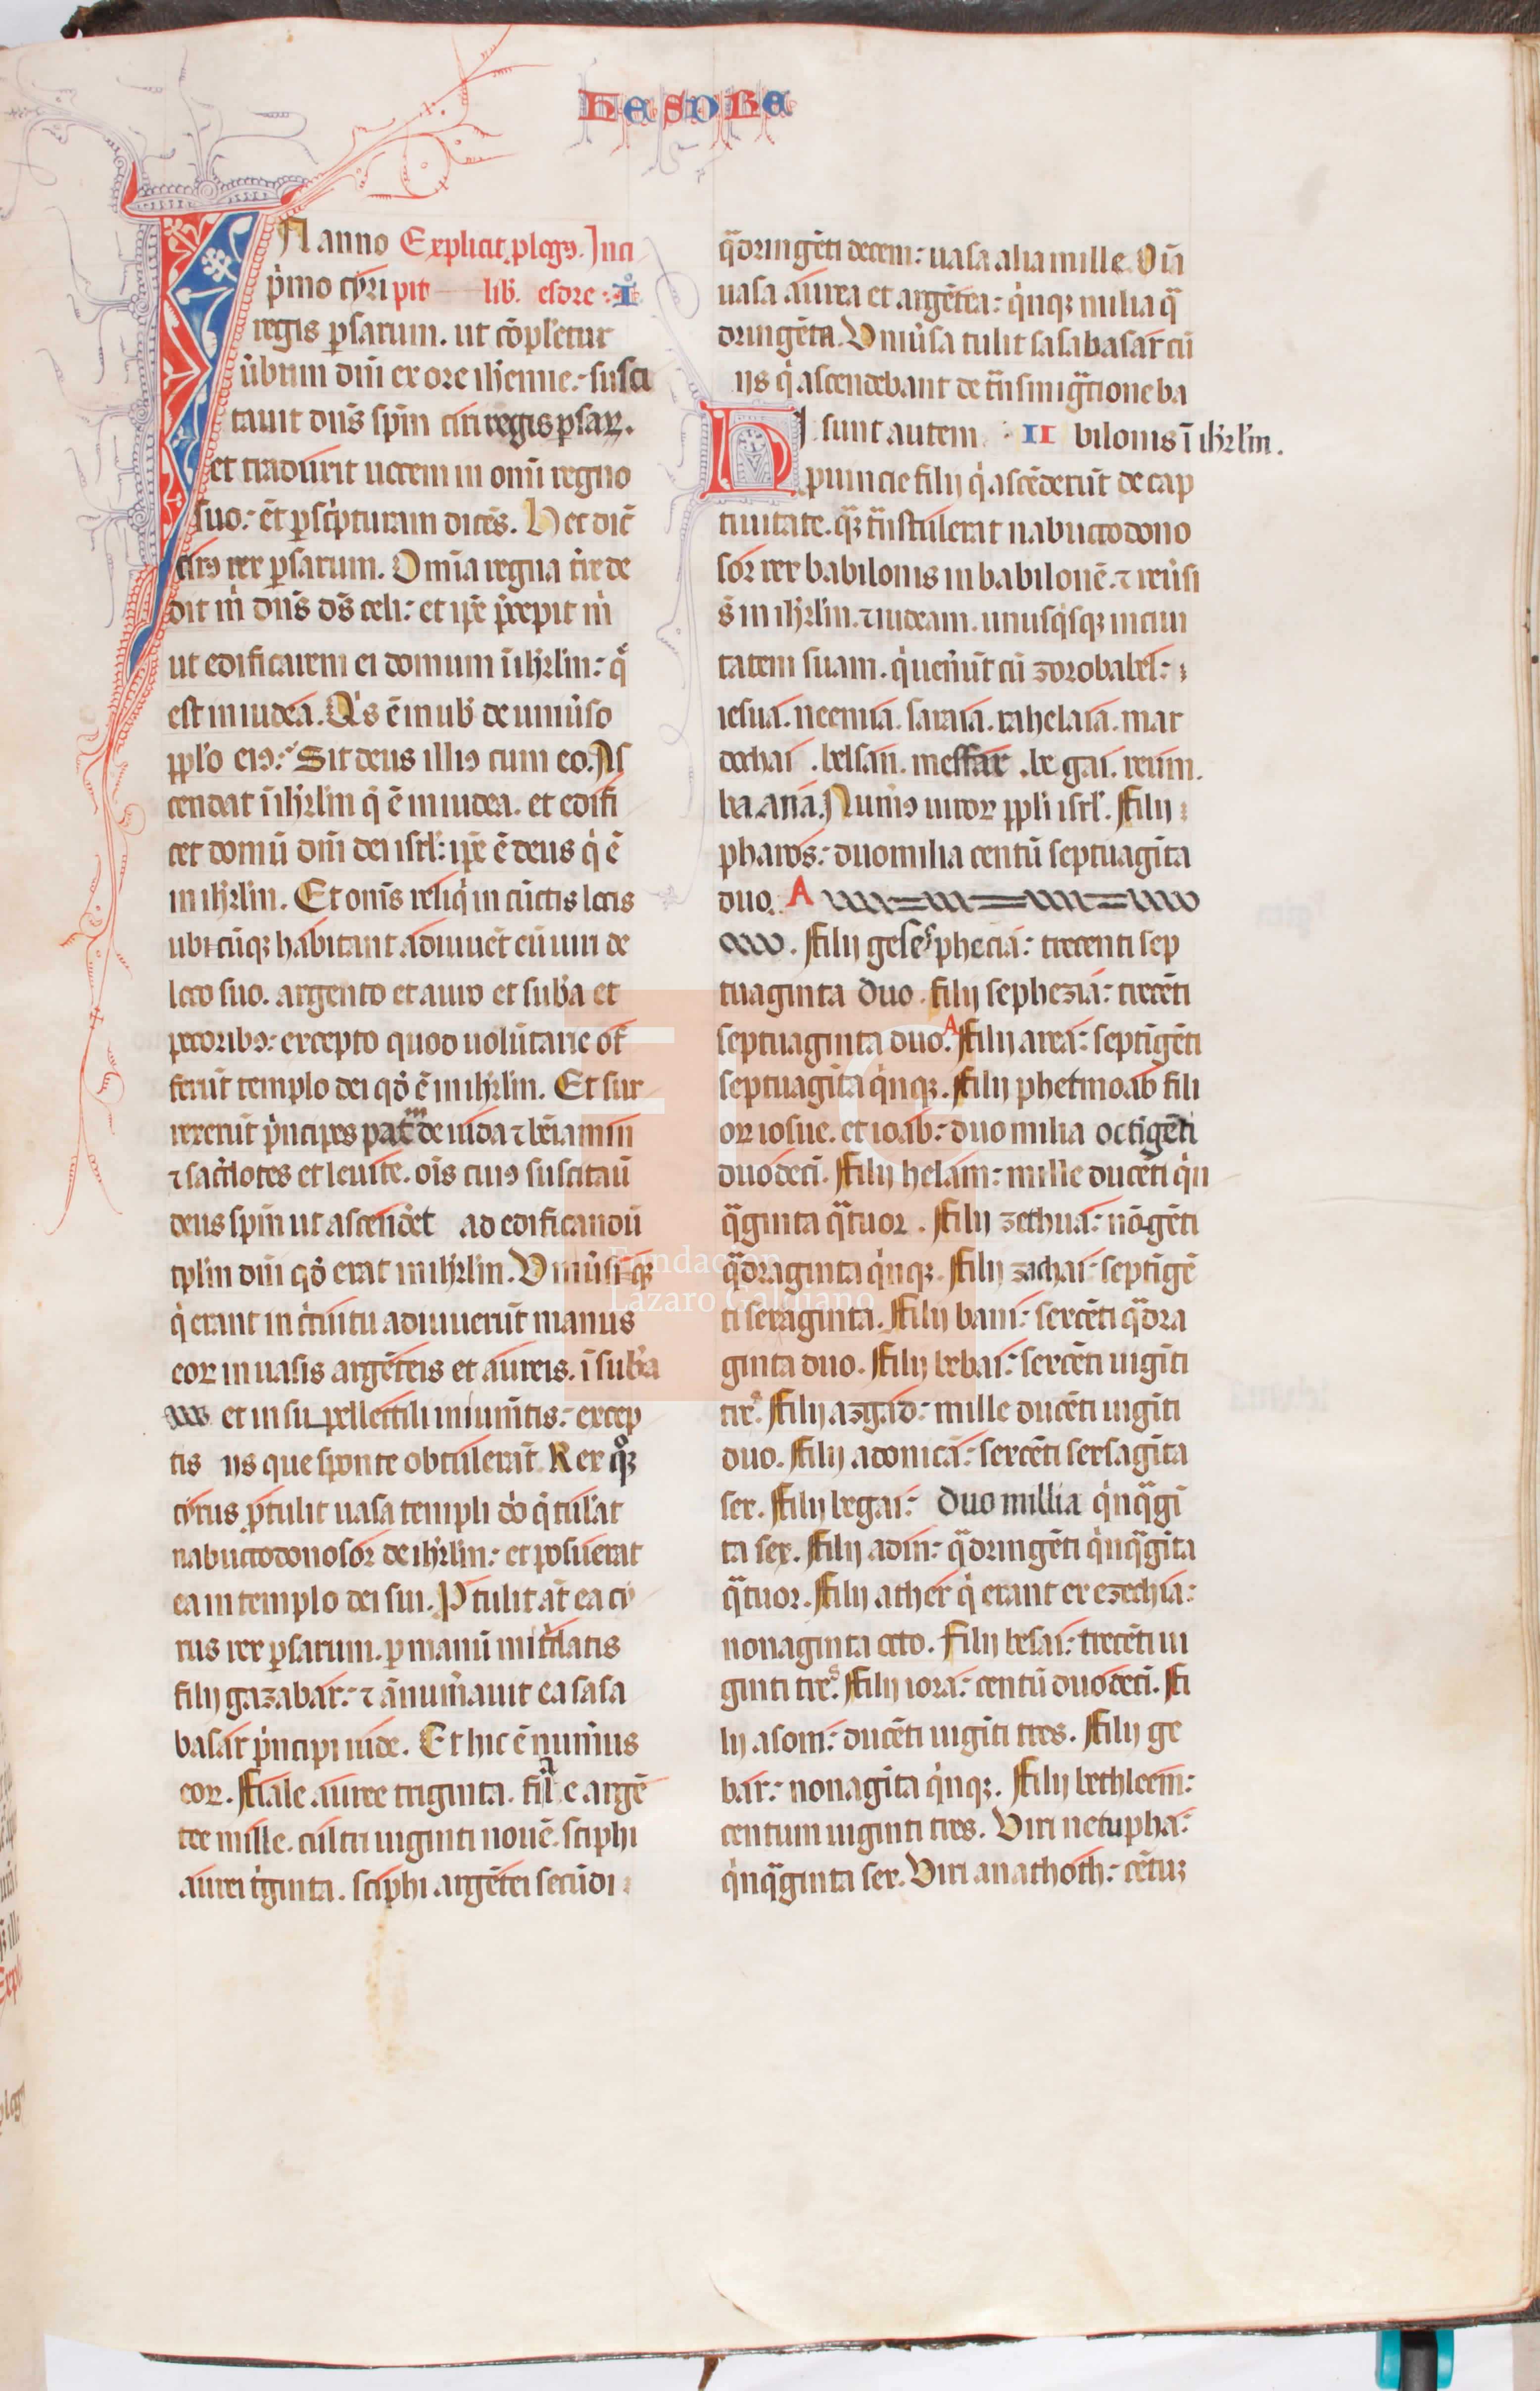 hesdRe
IN anno Explicit ꝓlogꝰ. Inci
pͥmo cyri pit lib̃. esdre : I
regis ꝑsarum. ut cõpleretur
ũbum dñi ex ore ih̃emie: susci
tauit dñs spm̃ ciri regis ꝑsaꝝ.
et traduxit uocem in om̃i regno
suo: et̃ ꝑ scͥpturam dicẽs. Hec dic̃
cirꝰ rex ꝑsarum. Omĩa regna tr̃e de
dit m̃ dñs ds̃ celi: et ip̃e p̃cepit m̃
ut edificarem ei domum ĩ ih̃rlm̃: q̃
est in iudea. Qͥs ẽ in uob̃ de uniũso
pplo eiꝰ: Sit deus illiꝰ cum eo. As
cendat ĩ ih̃rlm̃ qͥ ẽ in iudea. et edifi
cet domũ dñi dei isrl̃: ip̃e ẽ deus qͥ ẽ
in ih̃rlm̃. Et om̃s reliqͥ in cũctis locis
ubicũqꝫ habitant adiuuẽt eũ uiri de
loco suo. argento et auro et sub̃a et
pecoribꝰ: excepto quod uolũtarie of
ferũt templo dei qd̃ ẽ in ih̃rlm̃. Et sur
rexerũt pͥncipes patͫ de iuda ⁊ beĩamin
⁊ sac̃dotes et leuite. om̃s cuiꝰ suscitauͥ
deus spm̃ ut ascend̃et ad edificandũ
tplm̃ dñi qd̃ erat in ih̃rlm̃. Uniũsiqꝫ
qͥ erant in cͥcuitu adiuuerũt manus
eoꝝ in uasis argẽteis et aureis. ĩ sub̃a
et in supellectili in iumẽtis: excep
tis iis que sponte obtulerãt. Rex qꝫ
cyrus ꝓtulit uasa templi dñi q̃ tul̃at
nabuccodonosor de ih̃rlm̃: et posuerat
ea in templo dei sui. Ꝓtulit at̃ ea cy
rus rex ꝑsarum. ꝑ manũ mitͥdatis
filij gazabar: ⁊ ãnum̃auit ea sasa
basar pͥncipi iude. Et hic ẽ num̃us
eoꝝ. Fiale auree triginta. fiale argẽ
tee mille. cultri uiginti nouẽ. sciphi
aurei tͥginta. sciphi argẽtei secũdi
q̃dringẽti decem: uasa alia mille. Om̃ia
uasa aurea et argẽtea: qͥnqꝫ milia q̃
dringẽta. Uniũsa tulit sasabasar cũ
iis qͥ ascendebant de tñsmigͣtione ba
HI sunt autem II bilonis ĩ ih̃rlm̃.
ꝓuincie filij qͥ ascẽderũt de cap
tiuitate. qꝫ tñstulerat nabuccodono
sor rex babilonis in babilonẽ. ⁊ reũsi
s̃ in ih̃rlm̃. ⁊ iudeam. unusqͥsqꝫ in ciui
tatem suam. qͥ uenẽũt cũ zorobabel:
iesua. neemia. saraia. rahelaia. mar
dochai. belsan. mesfar. be gai. reum.
baana. Num̃ꝰ uiroꝝ ppli isrl̃. Filij
pharos: duo milia centũ septuagĩta
duo. A
Filij gesesͬphecia: trecenti sep
tuaginta duo. filij sephezia: trecẽti
septuaginta duo. A Filij area: septĩgẽti
septuagĩta qͥnqꝫ. Filij phetmoab fili
oꝝ iosue. et ioab: duo milia octigẽti
duodeci. Filij helam: mille ducẽti qͥn
qͣginta qͣtuor. Filij zethua: nõgẽti
qͣdraginta qͥnqꝫ. Filij zachai: septĩgẽ
ti sexaginta. Filij bani: sexcẽti qͣdra
ginta duo. Filij bebai: sexcẽti uigĩti
treˢ. Filij azgad: mille ducẽti uigĩti
duo. Filij adonicã: sexcẽti sexsagĩta
sex. Filij begai: duo millia qͥnqͣgĩ
ta sex. Filij adin: qͣdringẽti qͥnqͣgĩta
qͣtuor. Filij ather qͥ erant ex ezechia:
nonaginta octo. Filij besai: trecẽti ui
ginti treˢ. Filij iora: centũ duodeci. Fi
lij asom: ducẽti uigĩti tres. Filij ge
bar: nonagĩta qͥnqꝫ. Filij bethleem:
centum uiginti tres. Viri netupha:
qͥnqͣginta sex. Viri anathoth: cẽtuꝫ
Fundación
Lázaro Galdiano